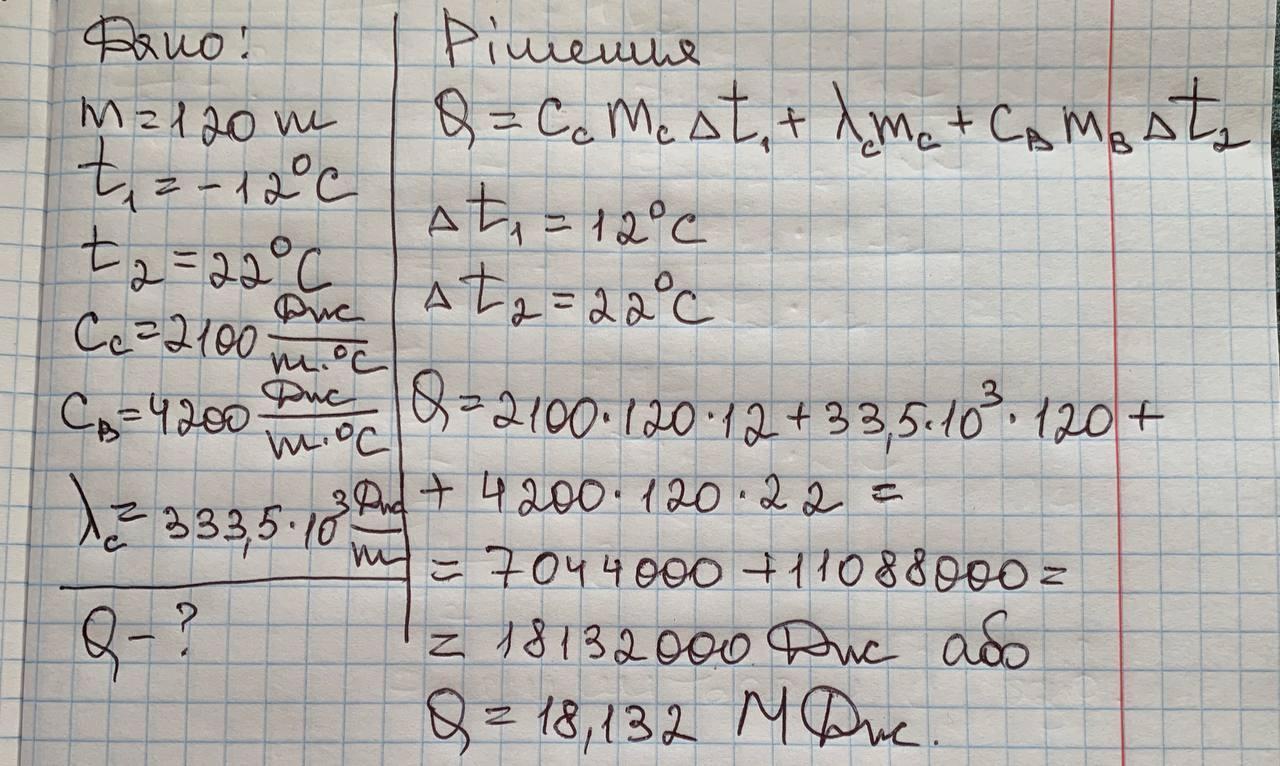 Дано:
m = 120 т
t₁ = -12°C
t₂ = 22°C
Cс = 2100 Дж/т·°C
Cв = 4200 Дж/т·°C
λс = 333,5·10³ Дж/т
Q - ?
Рішення
Q = Cс mс Δt₁ + λс mс + Cв mв Δt₂
Δt₁ = 12°C
Δt₂ = 22°C
Q = 2100·120·12 + 33,5·10³·120 +
+ 4200·120·22 =
= 7044000 + 11088000 =
= 18132000 Дж або
Q = 18,132 МДж.